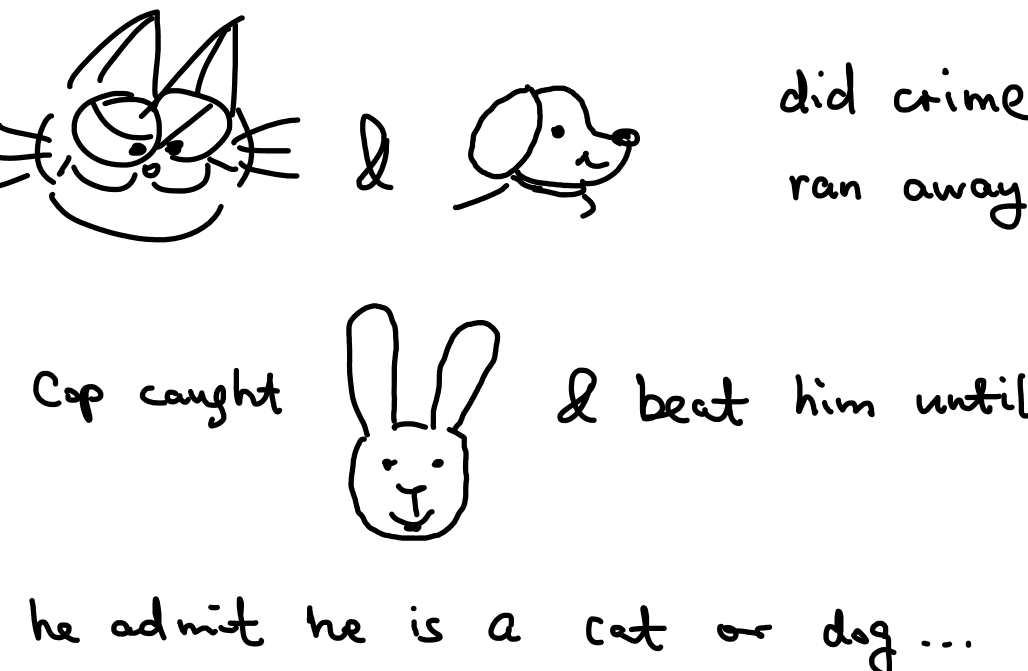 & did crime
ran away
Cop caught & beat him until
he admit he is a cat or dog...